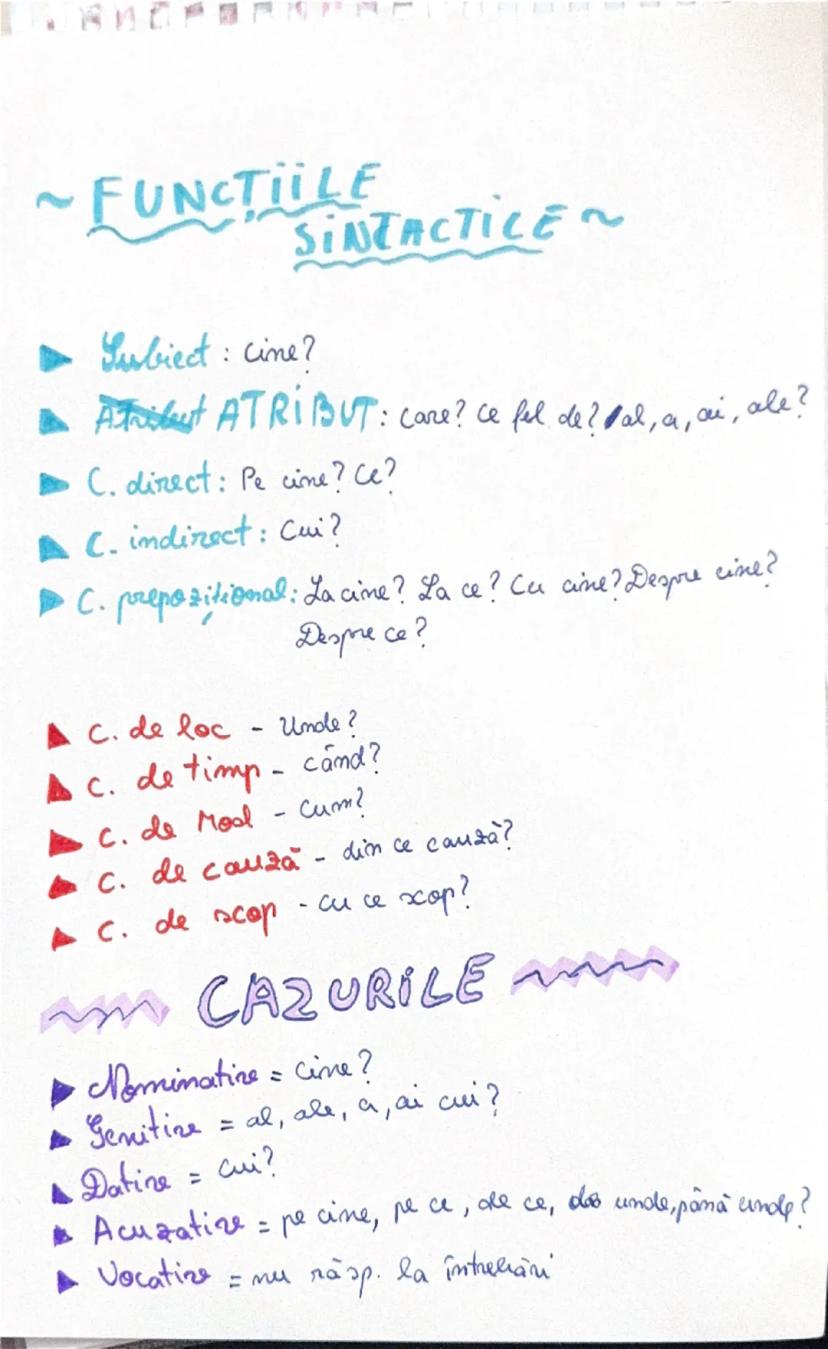 ~ FUNCȚIILE
SINTACTICE ~
Subiect : Cine?
Atribut ATRIBUT: Care? Ce fel de? al, a, ai, ale?
C. direct: Pe cine? Ce?
C. indirect: Cui?
C. prepozițional: La cine? La ce? Cu cine? Despre cine?
Despre ce?
C. de loc - Unde?
C. de timp - când?
C. de Mod - Cum?
C. de cauză - din ce cauză?
C. de scop - cu ce scop?
CAZURILE
Nominative = Cine?
Genitive = al, ale, a, ai cui?
Dative = cui?
Acuzative = pe cine, pe ce, de ce, unde, până unde?
Vocative = nu răsp. la întrebări